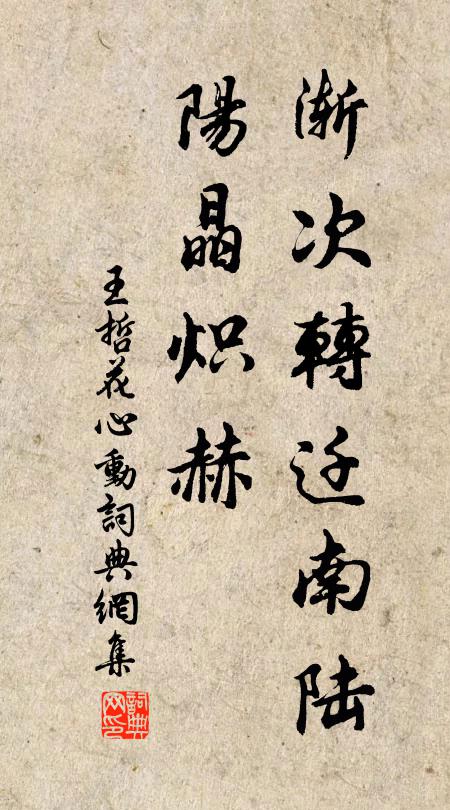 渐次轉迁南陆
陽晶炽赫
王哲花心動詞典網集
詞典网印